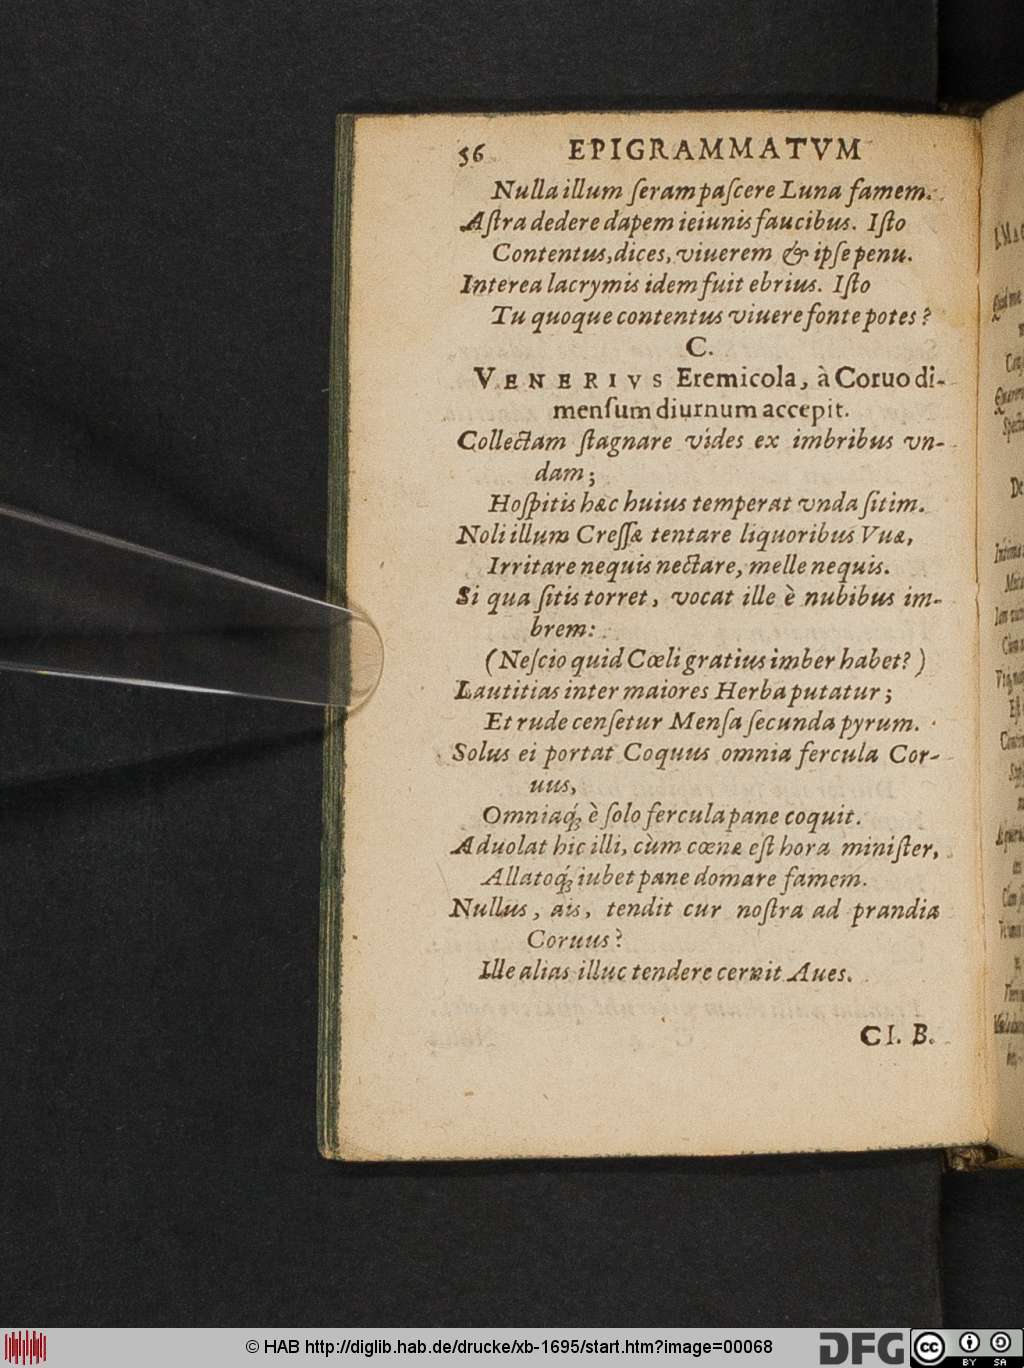 56 EPIGRAMMATVM
Nulla illum ſeram paſcere Luna famem.
Aſtra dedere dapem ieiunis faucibus. Iſto
Contentus, dices, viuerem & ipſe penu.
Interea lacrymis idem fuit ebrius. Iſto
Tu quoque contentus viuere fonte potes?
C.
VENERIVS Eremicola, à Coruo di-
menſum diurnum accepit.
Collectam ſtagnare vides ex imbribus vn-
dam;
Hoſpitis hæc huius temperat vnda ſitim.
Noli illum Creſſæ tentare liquoribus Vuæ,
Irritare nequis nectare, melle nequis.
Si qua ſitis torret, vocat ille è nubibus im-
brem:
(Neſcio quid Cœli gratius imber habet?)
Lautitias inter maiores Herba putatur;
Et rude cenſetur Menſa ſecunda pyrum.
Solus ei portat Coquus omnia fercula Cor-
uus,
Omniaq́; è ſolo fercula pane coquit.
Aduolat hic illi, cùm cœnæ eſt hora miniſter,
Allatoq́; iubet pane domare famem.
Nullus, ais, tendit cur noſtra ad prandia
Coruus?
Ille alias illuc tendere cernit Aues.
CI. B.
© HAB http://diglib.hab.de/drucke/xb-1695/start.htm?image=00068
DFG
cc BY SA